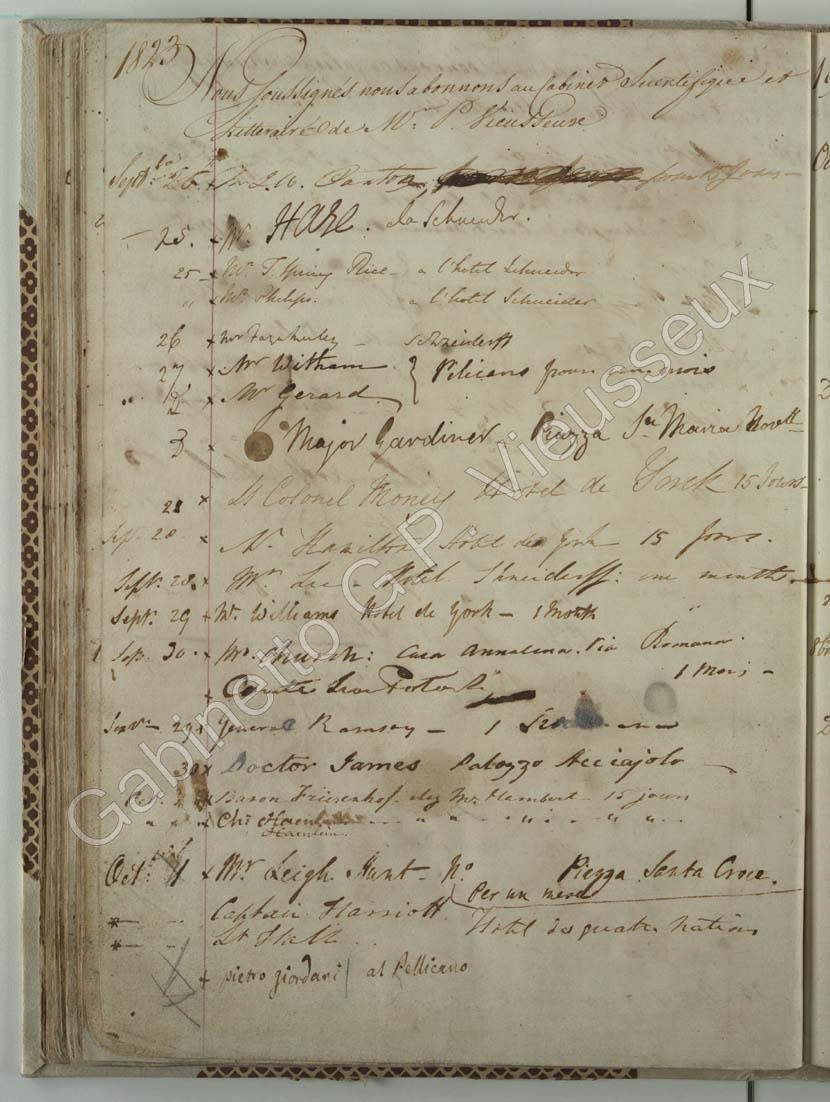 1823
Nous Soussignés nous abonnons au Cabinet Scientifique et
Litteraire de Mr. P. Vieusseux
Septbre 26 pour 15 Jours
25. x Mr. HARE. da Schneider.
25 x Mr. T. Spring Rice - a l'hotel Schneider
" x Mr. Philips. a l'hotel Schneider
26 x Mr Fazakerley - Schneiderff
27 x Mr Witham } Pelicano pour un mois
" 2 x Mr Gerard
3 Major Gardiner - Piazza Sta Maria Novella
21 x Lt Colonel Money Hotel de York 15 Jours
Sep. 28 x Mr. Hamilton Hotel de York 15 Jours.
Sept. 28 x Mr. Lee - Hotel Shneiderff: one month
Sept. 29 x Mr. Williams Hotel de York - 1 Month
1 Sep. 30 x Mr. Church: Casa Annalena. Via Romana.
x Comte Leon Potocki 1 Mois -
29 x General Ramsay - 1
30 x Doctor James Palazzo Acciajolo
Oct. x Baron Friesenhof chez Me Hombert - 15 jours
" " x Chr Haenlein " " " " "
Haenlein.
Oct. 1 x Mr Leigh Hunt - No Piazza Santa Croce.
Per un mese
* Captain Harriott
* Lt Hall Hotel des quatre Nations
x pietro giordani al Pellicano
Gabinetto G.P. Vieusseux